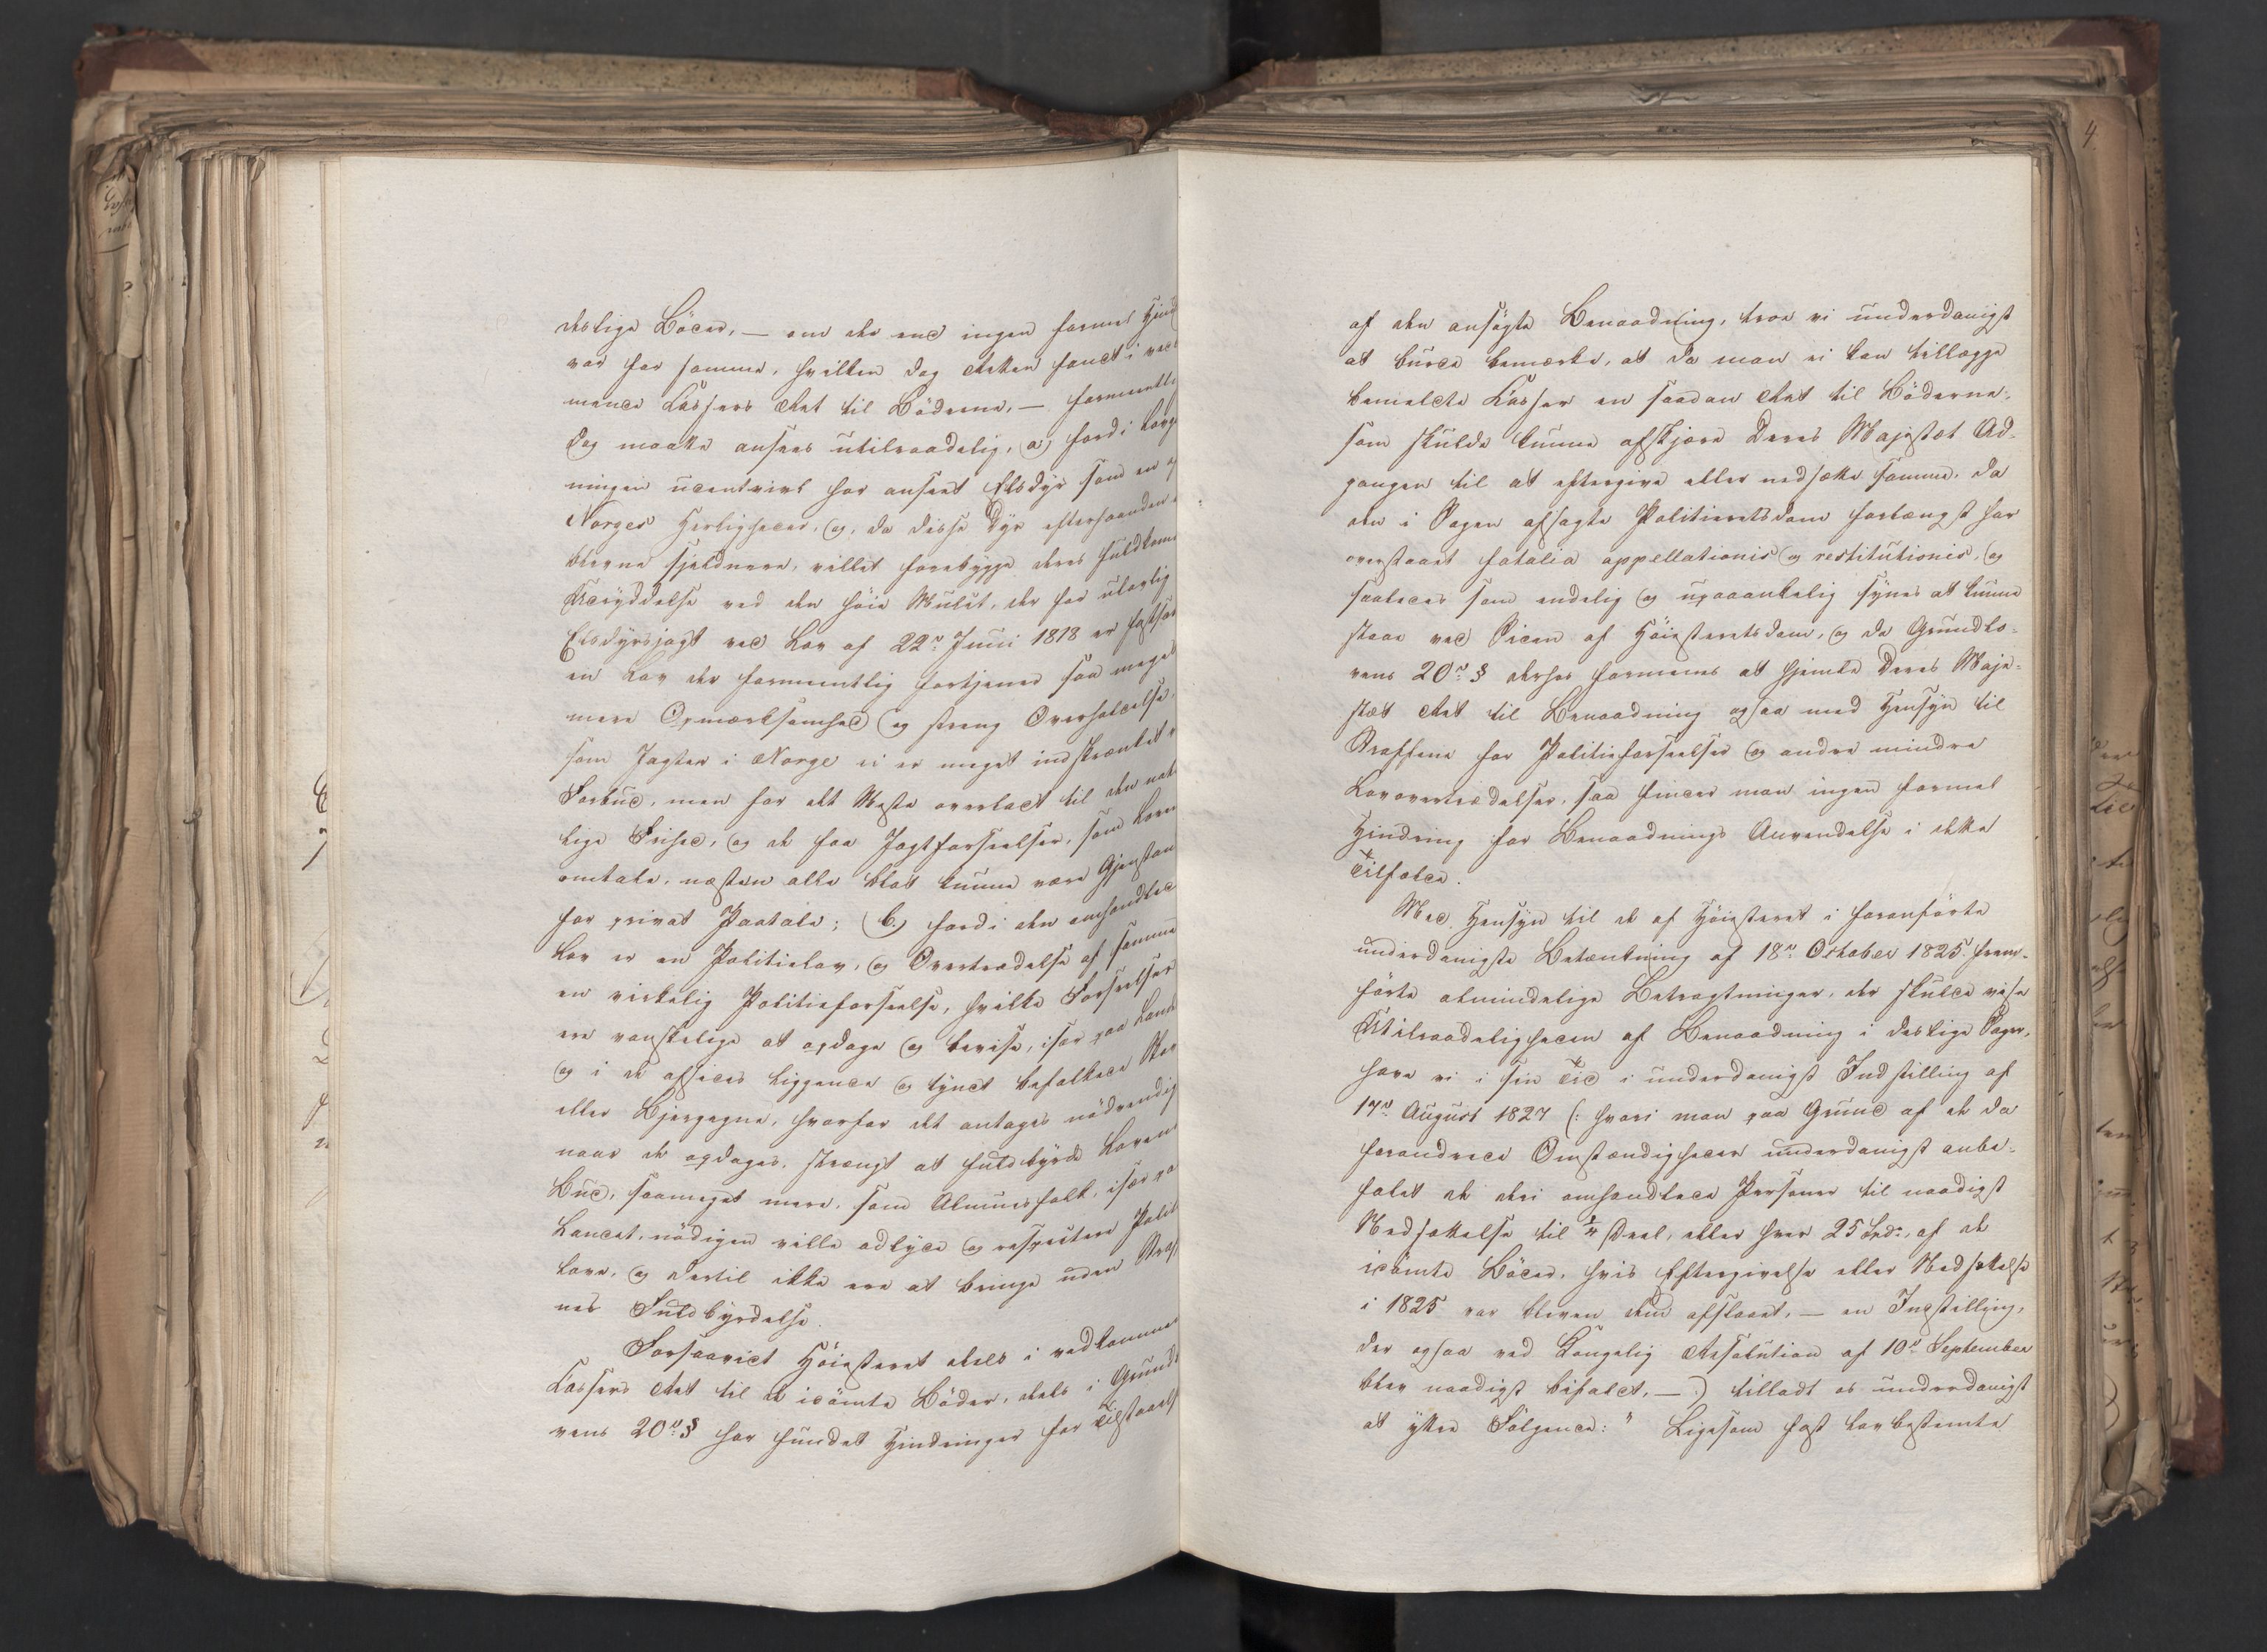 deslige Böder, — om der end ingen formel Hind
var for samme, hvilken dog Retten fandt i ved
mende Kassers Ret til Böderne, — formeentl
dog maatte ansees utilraadelig, a) fordi Lovg
ningen udentvivl har anseet Elsdyr som en
Norges Herligheder, og, da disse Dyr efterhaanden
blevne sjeldnere, villet forebygge deres fuldkom
Udryddelse ved den höie Mulct, der for ulovlig
Elsdyrsjagt ved Lov af 22de Juni 1818 er fastsat
en Lov der formeentlig fortjener saa meget
mere Opmærksomhed og streng Overholdelse,
som Jagten i Norge ei er meget indskrænket v
Forbud, men for det Meste overladt til den nat
lige Frihed, og de faa Jagtforseelser, som Loven
omtale, næsten alle blot kunne være Gjenstan
for privat Paatale; b.) fordi den omhandlede
Lov er en Politielov, og Overtrædelse af samme
en virkelig Politieforseelse, hvilke Forseelser
ere vanskelige at opdage og bevise, især paa Land
og i de afsides liggende og tyndt befolkede Skov
eller Bjergegne, hvorfor det antages nödvendig
naar de opdages, strængt at fuldbyrde Lovens
Bud, saameget mere, som Almuesfolk, især pa
Landet, nödigen ville adlyde og respectere Polit
love, og dertil ikke ere at bringe uden Straf
nes Fuldbyrdelse.
Forsaavidt Höiesteret deels i vedkomme
Kassers Ret til de idömte Böder, deels i Grundl
vens 20de § har fundet Hindringer for Tilstaaels
4
af den ansögte Benaadning, troe vi underdanigst
at burde bemærke, at da man ei kan tillægge
bemeldte Kasser en saadan Ret til Böderne,
som skulde kunne afskjære Deres Majestæt Ad-
gangen til at eftergive eller nedsætte samme, da
den i Sagen afsagte Politieretsdom forlængst har
overstaaet fatalia appellationis og restitutionis, og
saaledes som endelig og upaaankelig synes at kunne
staae ved Siden af Höiesteretsdom, og da Grundlo-
vens 20de § derhos formenes at hjemle Deres Maje-
stæt Ret til Benaadning ogsaa med Hensyn til
Straffene for Politieforseelser og andre mindre
Lovovertrædelser, saa finder man ingen formel
Hindring for Benaadnings Anvendelse i dette
Tilfælde.
Med Hensyn til de af Höiesteret i foranförte
underdanigste Betænkning af 18de October 1825 frem-
förte almindelige Betragtninger, der skulde vise
Utilraadeligheden af Benaadning i deslige Sager,
have vi i sin Tid i underdanigst Indstilling af
17de August 1827 (: hvori man paa Grund af de da
forandrede Omstændigheder underdanigst anbe-
falet de tre omhandlede Personer til naadigst
Nedsættelse til 1/4 Deel, eller hver 25 Spd., af de
idömte Böder, hvis Eftergivelse eller Nedsættelse
i 1825 var bleven dem afslaaet, — en Indstilling,
der ogsaa ved Kongelig Resolution af 10de September
blev naadigst bifaldt, — :) tilladt os underdanigst
at yttre Fölgende: " Ligesom fast lovbestemte